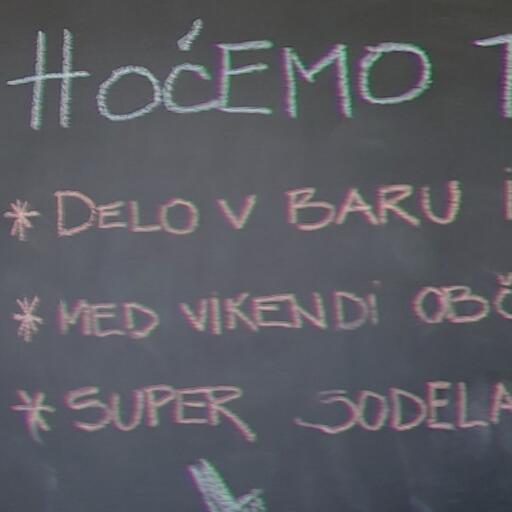 HOĆEMO T
* DELO V BARU I
* MED VIKENDI OBČ
* SUPER SODELA